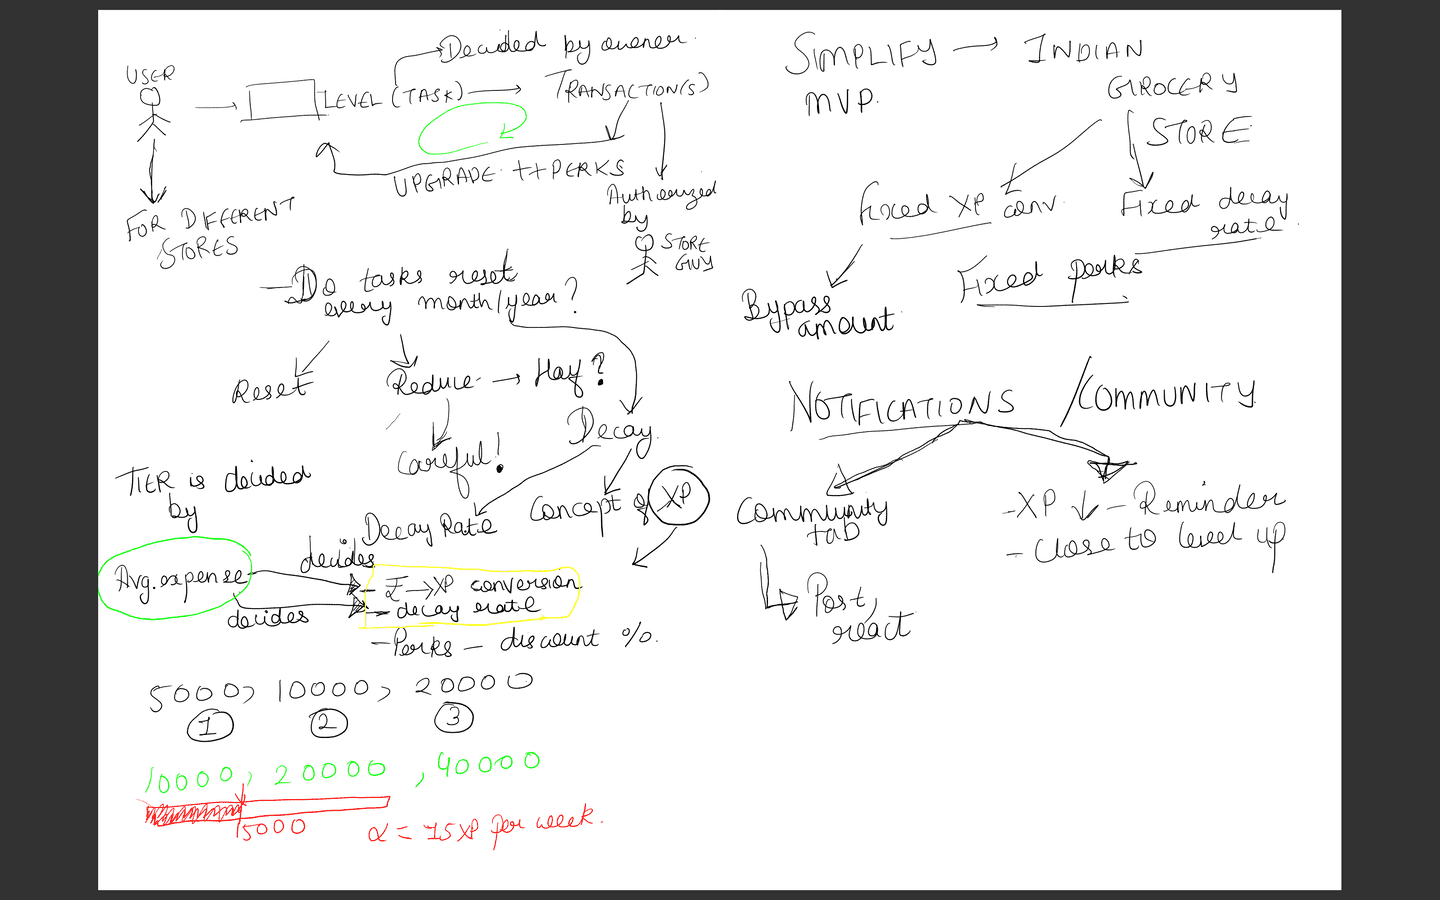 USER
LEVEL (TASK)
Decided by owner
TRANSACTION(S)
UPGRADE ++PERKS
Authorized
by
STORE
GUY
FOR DIFFERENT
STORES
- Do tasks reset
every month/year?
Reset
Reduce
Half?
Careful!
Decay
Decay Rate
Concept of XP
TIER is decided
by
Avg. expense
decides
decides
- ₹ → XP conversion
- decay rate
- Perks - discount %.
5000, 10000, 20000
1 2 3
10000, 20000, 40000
15000
α = 75 XP per week.
SIMPLIFY → INDIAN
MVP.
GROCERY
STORE
Fixed XP conv.
Fixed decay
rate
Fixed perks
Bypass
amount
NOTIFICATIONS /COMMUNITY
Community
tab
Post,
react
- XP ↓ - Reminder
- Close to level up